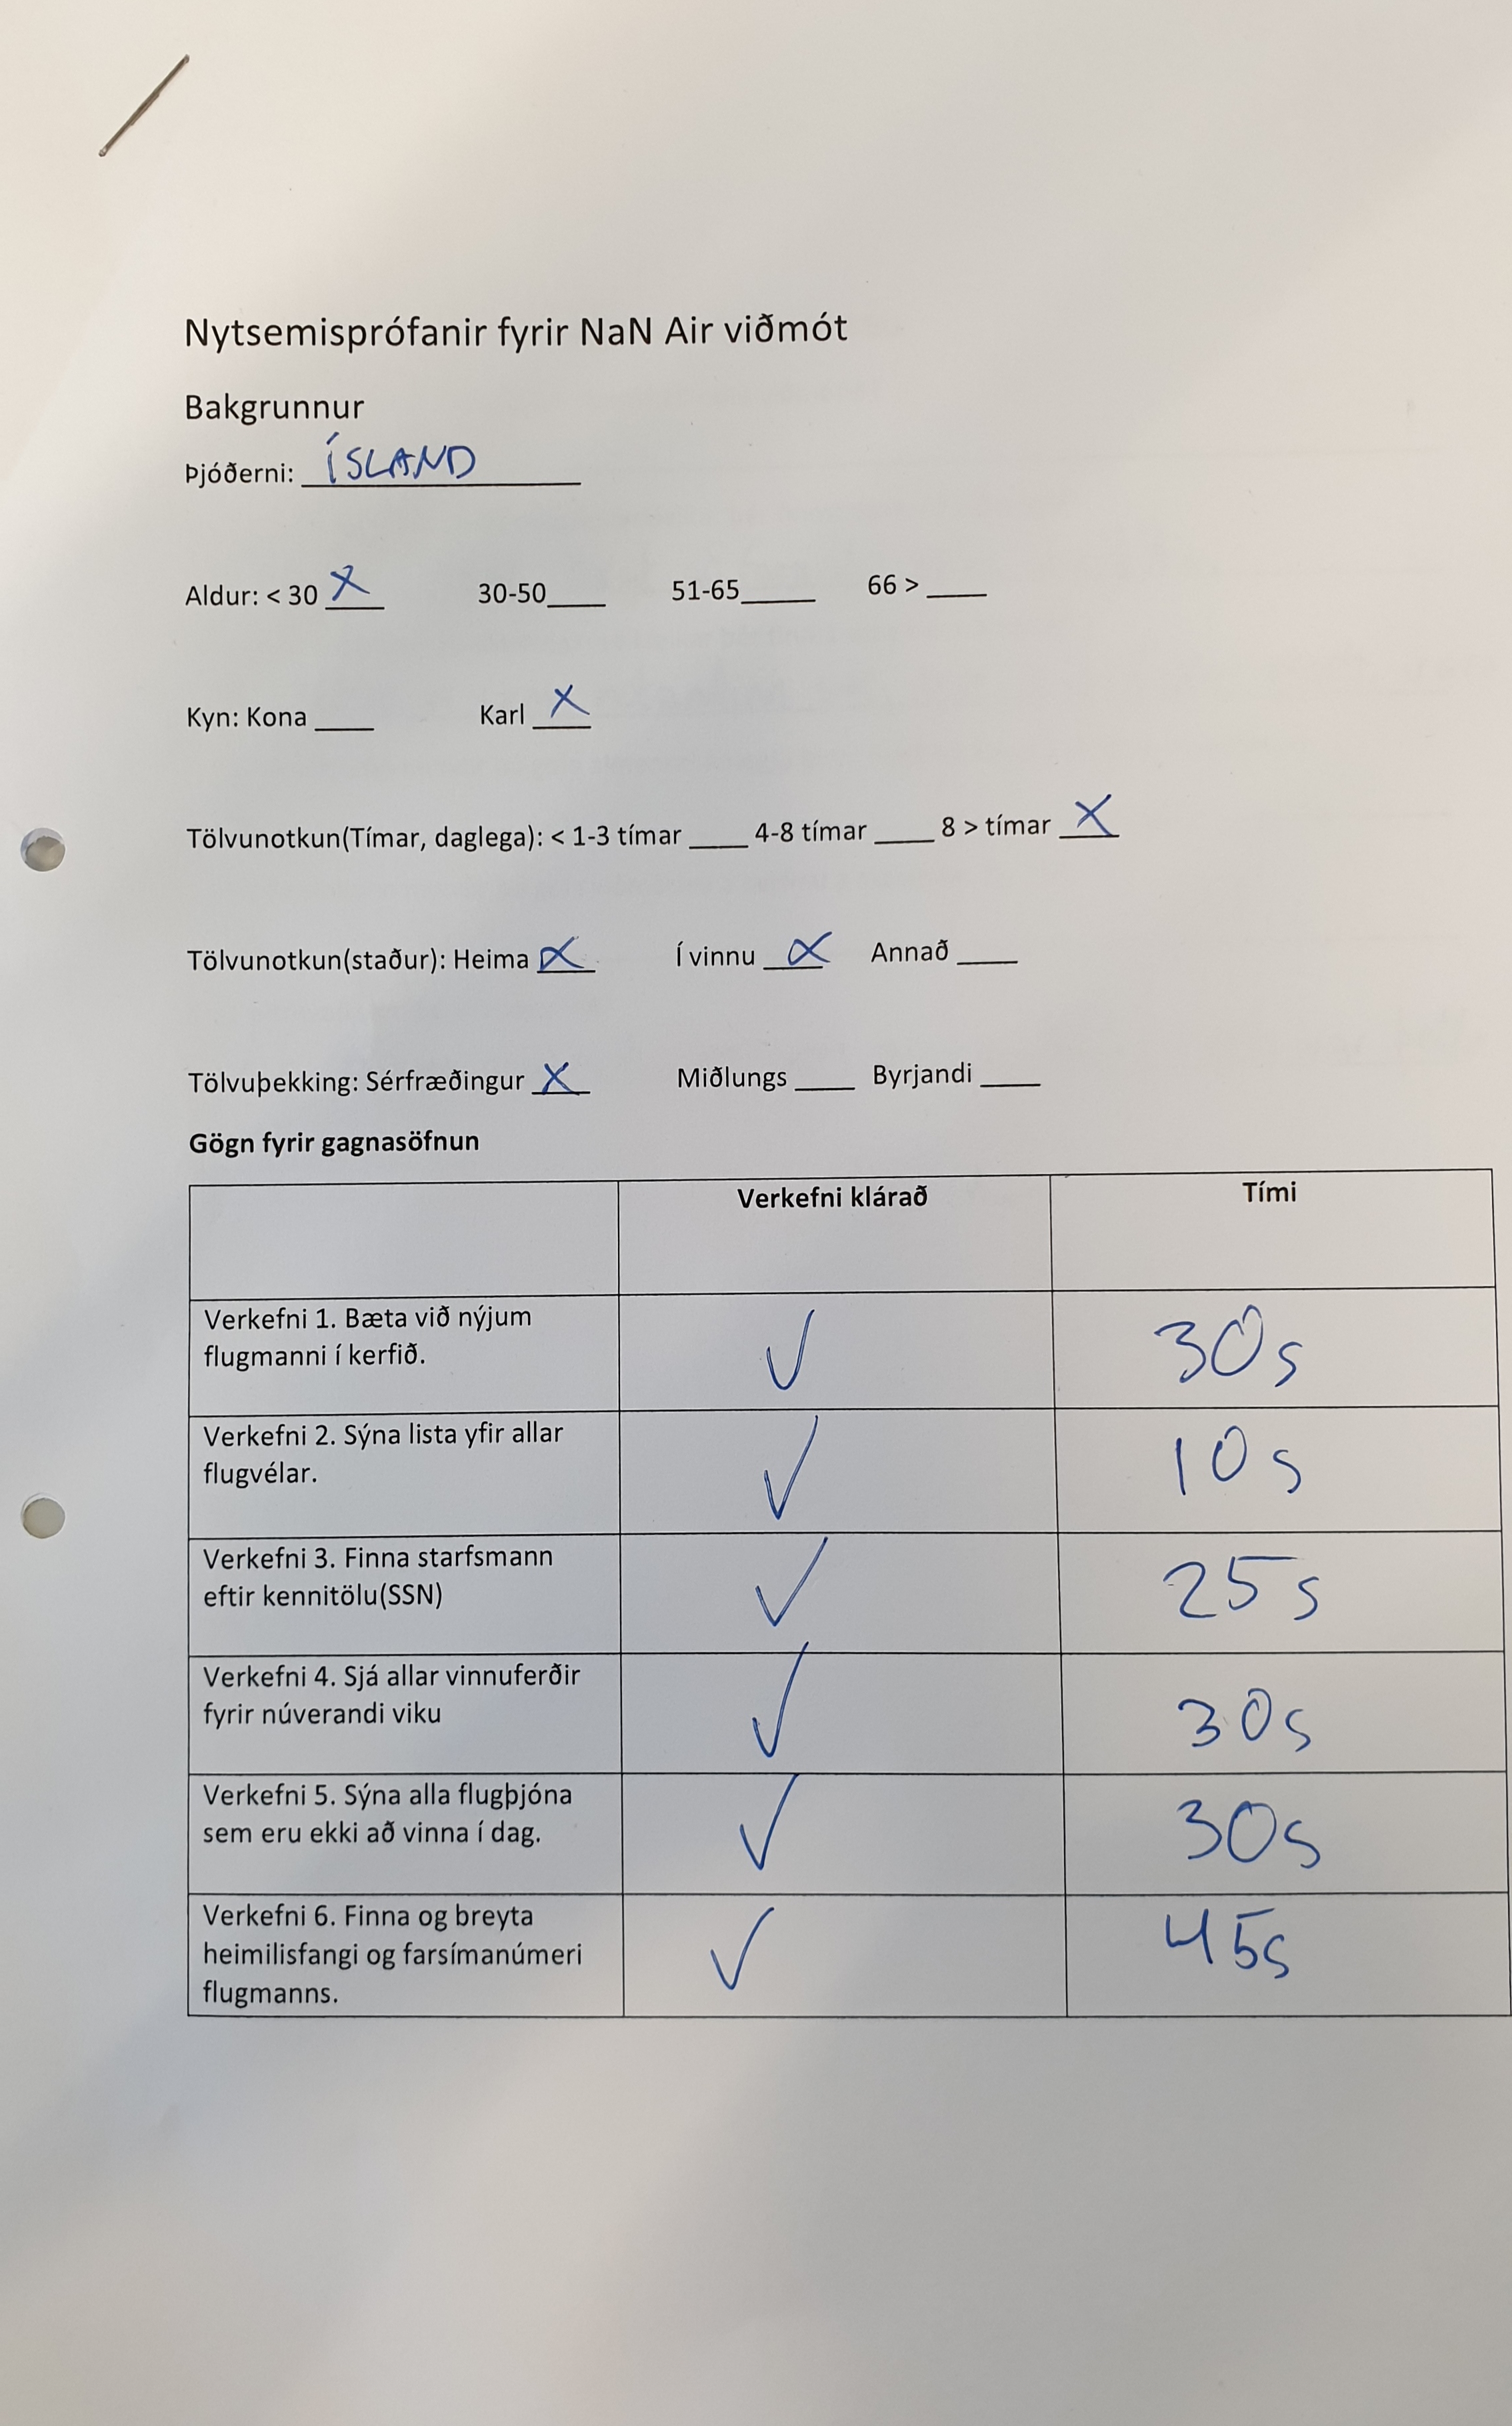 Nytsemisprófanir fyrir NaN Air viðmót
Bakgrunnur
Þjóðerni: ÍSLAND
Aldur: < 30 X 30-50____ 51-65____ 66 > ____
Kyn: Kona ____ Karl X
Tölvunotkun(Tímar, daglega): < 1-3 tímar ____ 4-8 tímar ____ 8 > tímar X
Tölvunotkun(staður): Heima X Í vinnu X Annað ____
Tölvuþekking: Sérfræðingur X Miðlungs ____ Byrjandi ____
Gögn fyrir gagnasöfnun
Verkefni klárað Tími
Verkefni 1. Bæta við nýjum
flugmanni í kerfið. ✓ 30s
Verkefni 2. Sýna lista yfir allar
flugvélar. ✓ 10s
Verkefni 3. Finna starfsmann
eftir kennitölu(SSN) ✓ 25s
Verkefni 4. Sjá allar vinnuferðir
fyrir núverandi viku ✓ 30s
Verkefni 5. Sýna alla flugþjóna
sem eru ekki að vinna í dag. ✓ 30s
Verkefni 6. Finna og breyta
heimilisfangi og farsímanúmeri ✓ 45s
flugmanns.